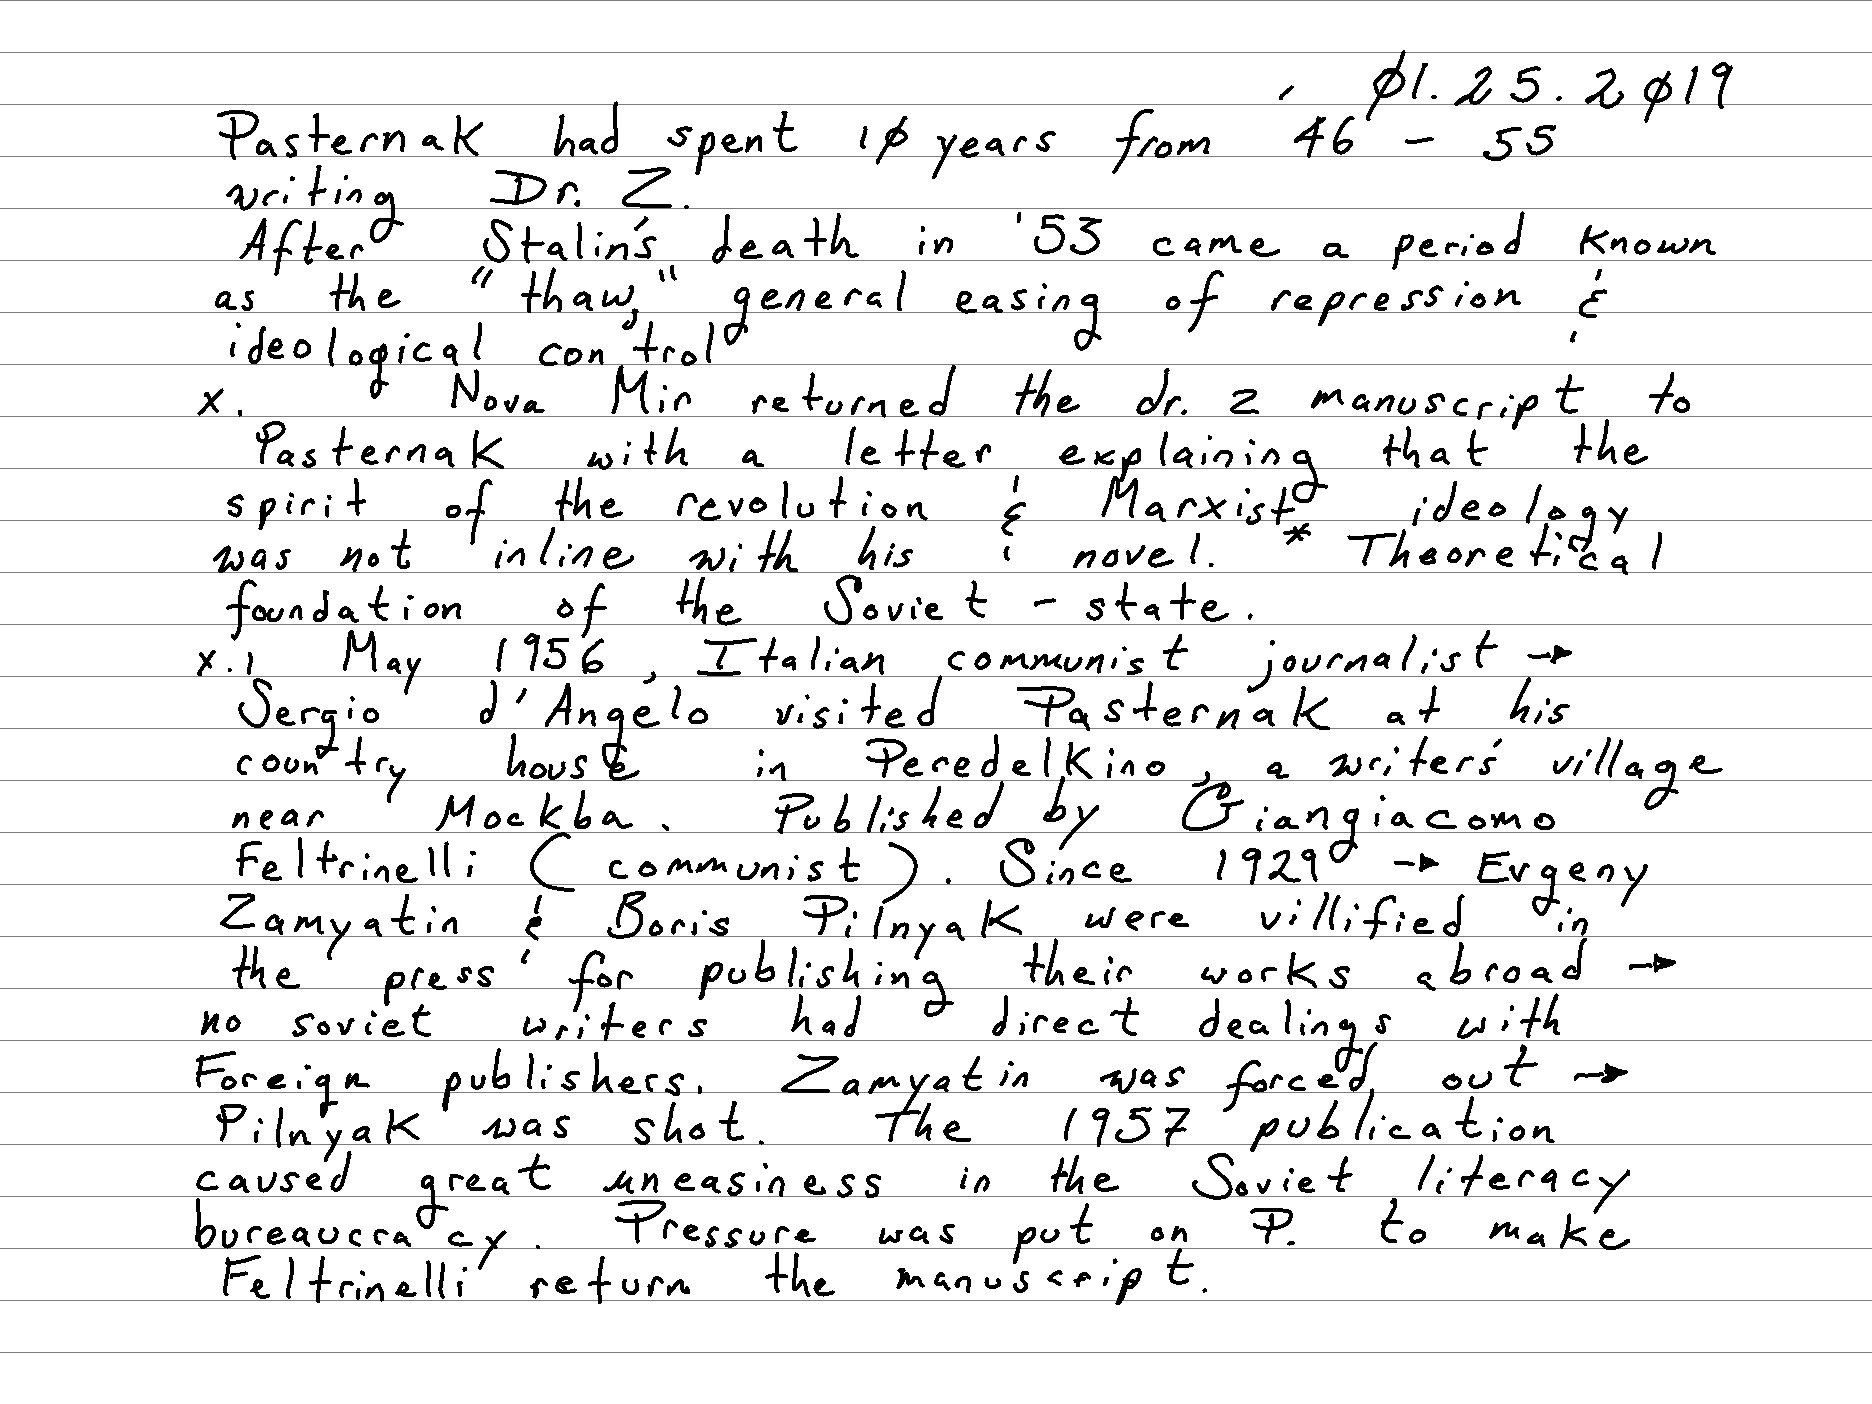 Ø1.25.2Ø19
Pasternak had spent 1Ø years from 46 - 55
writing Dr. Z.
After Stalin's death in '53 came a period known
as the "thaw," general easing of repression &
ideological control
x. Nova Mir returned the dr. z manuscript to
Pasternak with a letter explaining that the
spirit of the revolution & Marxist* ideology
was not inline with his novel. * Theoretical
foundation of the Soviet - state.
x.1 May 1956, Italian communist journalist →
Sergio d'Angelo visited Pasternak at his
country house in Peredelkino, a writer's village
near Mockba. Published by Giangiacomo
Feltrinelli (communist). Since 1929 → Evgeny
Zamyatin & Boris Pilnyak were villified in
the press for publishing their works abroad →
no soviet writers had direct dealings with
Foreign publishers. Zamyatin was forced out →
Pilnyak was shot. The 1957 publication
caused great uneasiness in the Soviet literacy
bureaucracy. Pressure was put on P. to make
Feltrinelli return the manuscript.